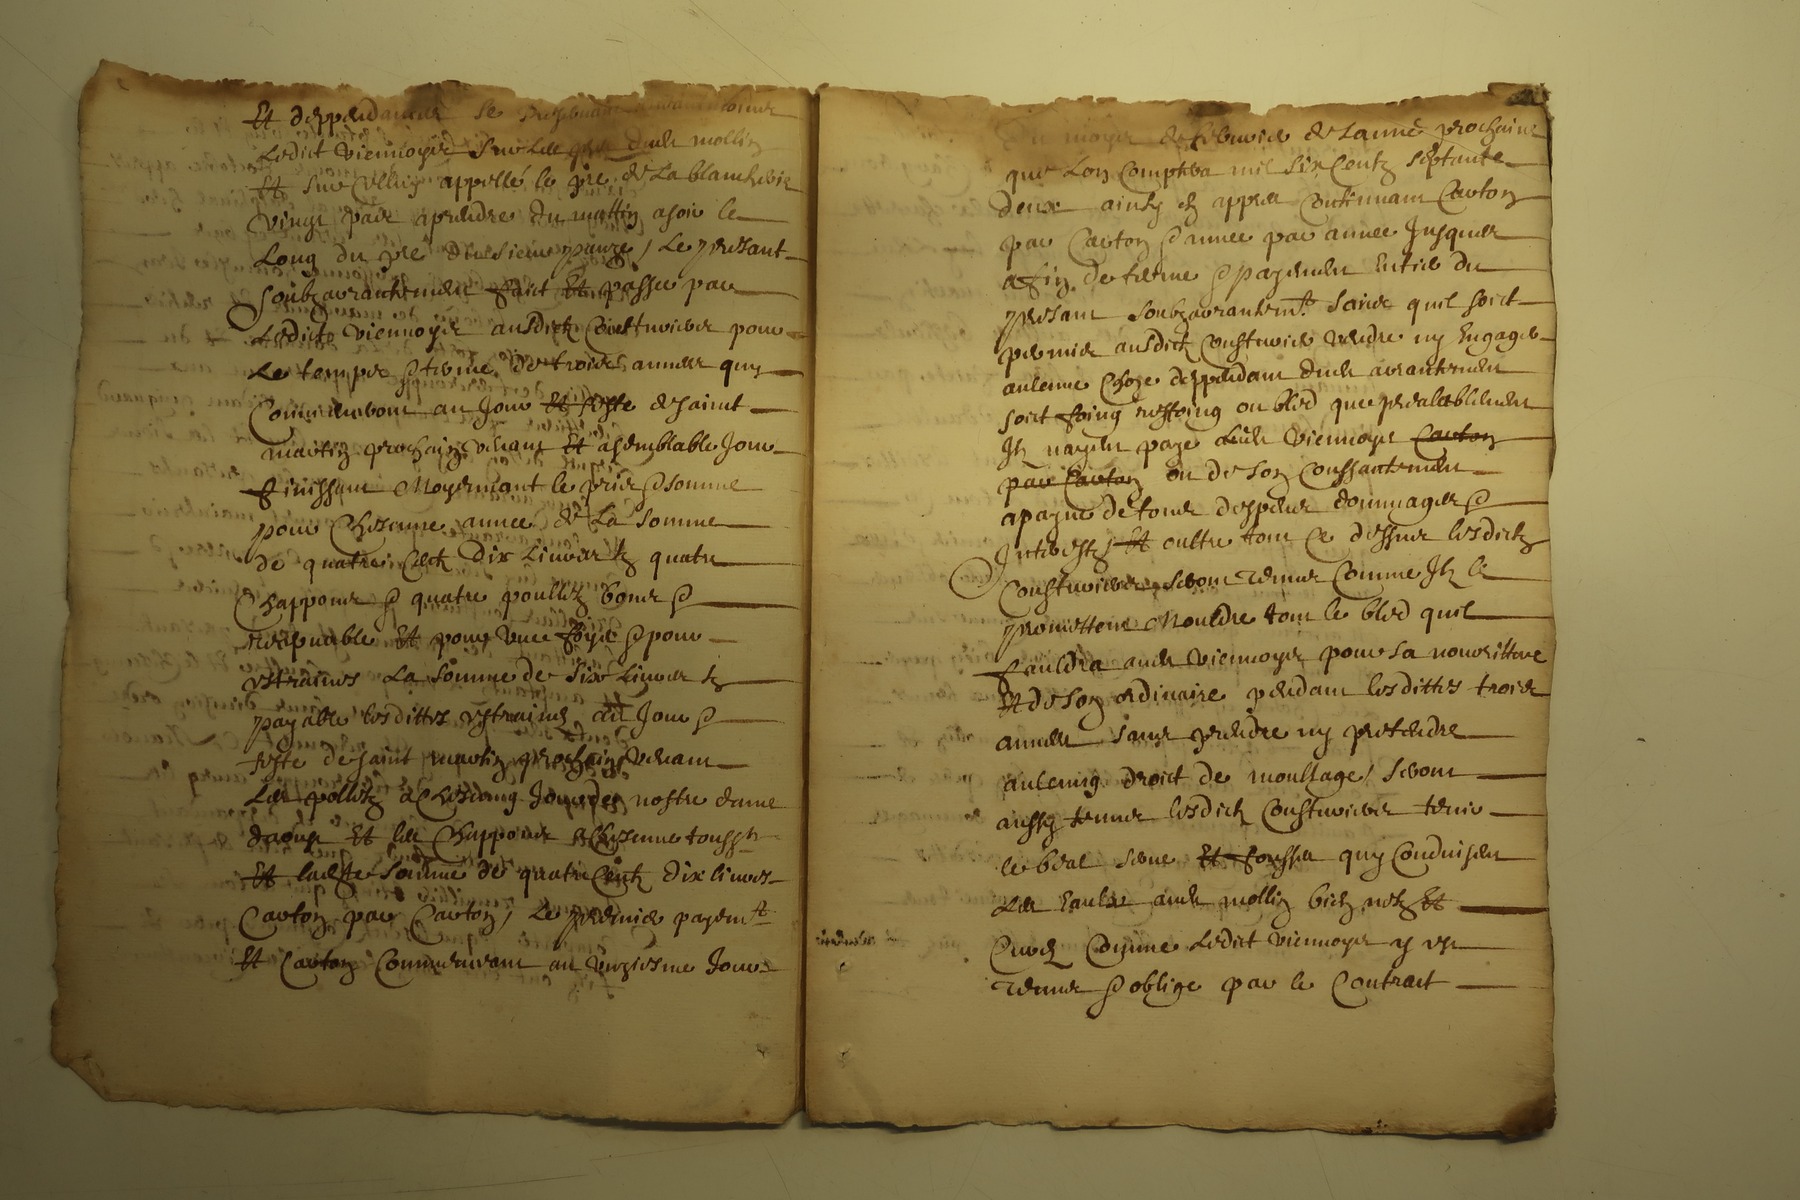 Et deppendances se reservant
Ledict viennoys sur les prés dudt mollin
Et sur celluy appellé le pre de la blancherie
vingt pair aprendre du mattin a soir le
Long du pre Le presant
Soubzarrantement faict Et passer par
Ledict viennoys ausdictz Cousturiers pour
Le temps & terme de trois annees quy
Commenceront au Jour Et feste de saint
martin prochain venant Et a semblable Jour
finissant Moyennant le pris & somme
pour Chesenne annee de La somme
de quatre Centz Dix Livres tz quatre
Chappons & quatre poulletz bons &
recepvable Et pour une foys & pour
estraines La somme de Six Livres tz
payable lesdittes estraines au Jour &
feste de saint martin prochain venant
Les polletz a Chescung Jour de nostre dame
daoust Et les Chappons a Chesenne toussts
Et ladte somme de quatre Centz dix livres
Carton par Carton / Le premier payemt
Et Carton Commencant au vingiesme Jour
Du moys de febvrier de Lanné prochaine
que Lon Comptera mil Six Centz septante
Deux ainsy & appres Continuant Carton
par Carton & annee par annee Jusques
a fin de terme & payement Entier du
presant soubzarrantemt. Sans quil soict
permis ausdictz cousturiers vendre ny Engager
aulcune Choze deppendant dudt arrantement
soict foing restoing ou bled que prealablement
Ilz nayent paye audt Viennoys Carton
par Carton ou de son Conssantement
a payne de tous despens dommages &
Interestz / Et oultre tout Ce dessus lesdictz
Cousturiers seront tenus Comme Ilz le
promettent Mouldre tout le bled quil
fauldra audt Viennoys pour sa nourritture
Et de son ordinaire pendant lesdittes trois
annees sans prendre ny pretendre
aulcung droict de moultage / seront
aussy tenus lesdictz Cousturiers tenir
le beal serve Et fousses quy Conduisent
Les Eaulx audt mollin bien netz Et
Curez Comme Ledict viennoys y est
tenus & oblige par le Contract